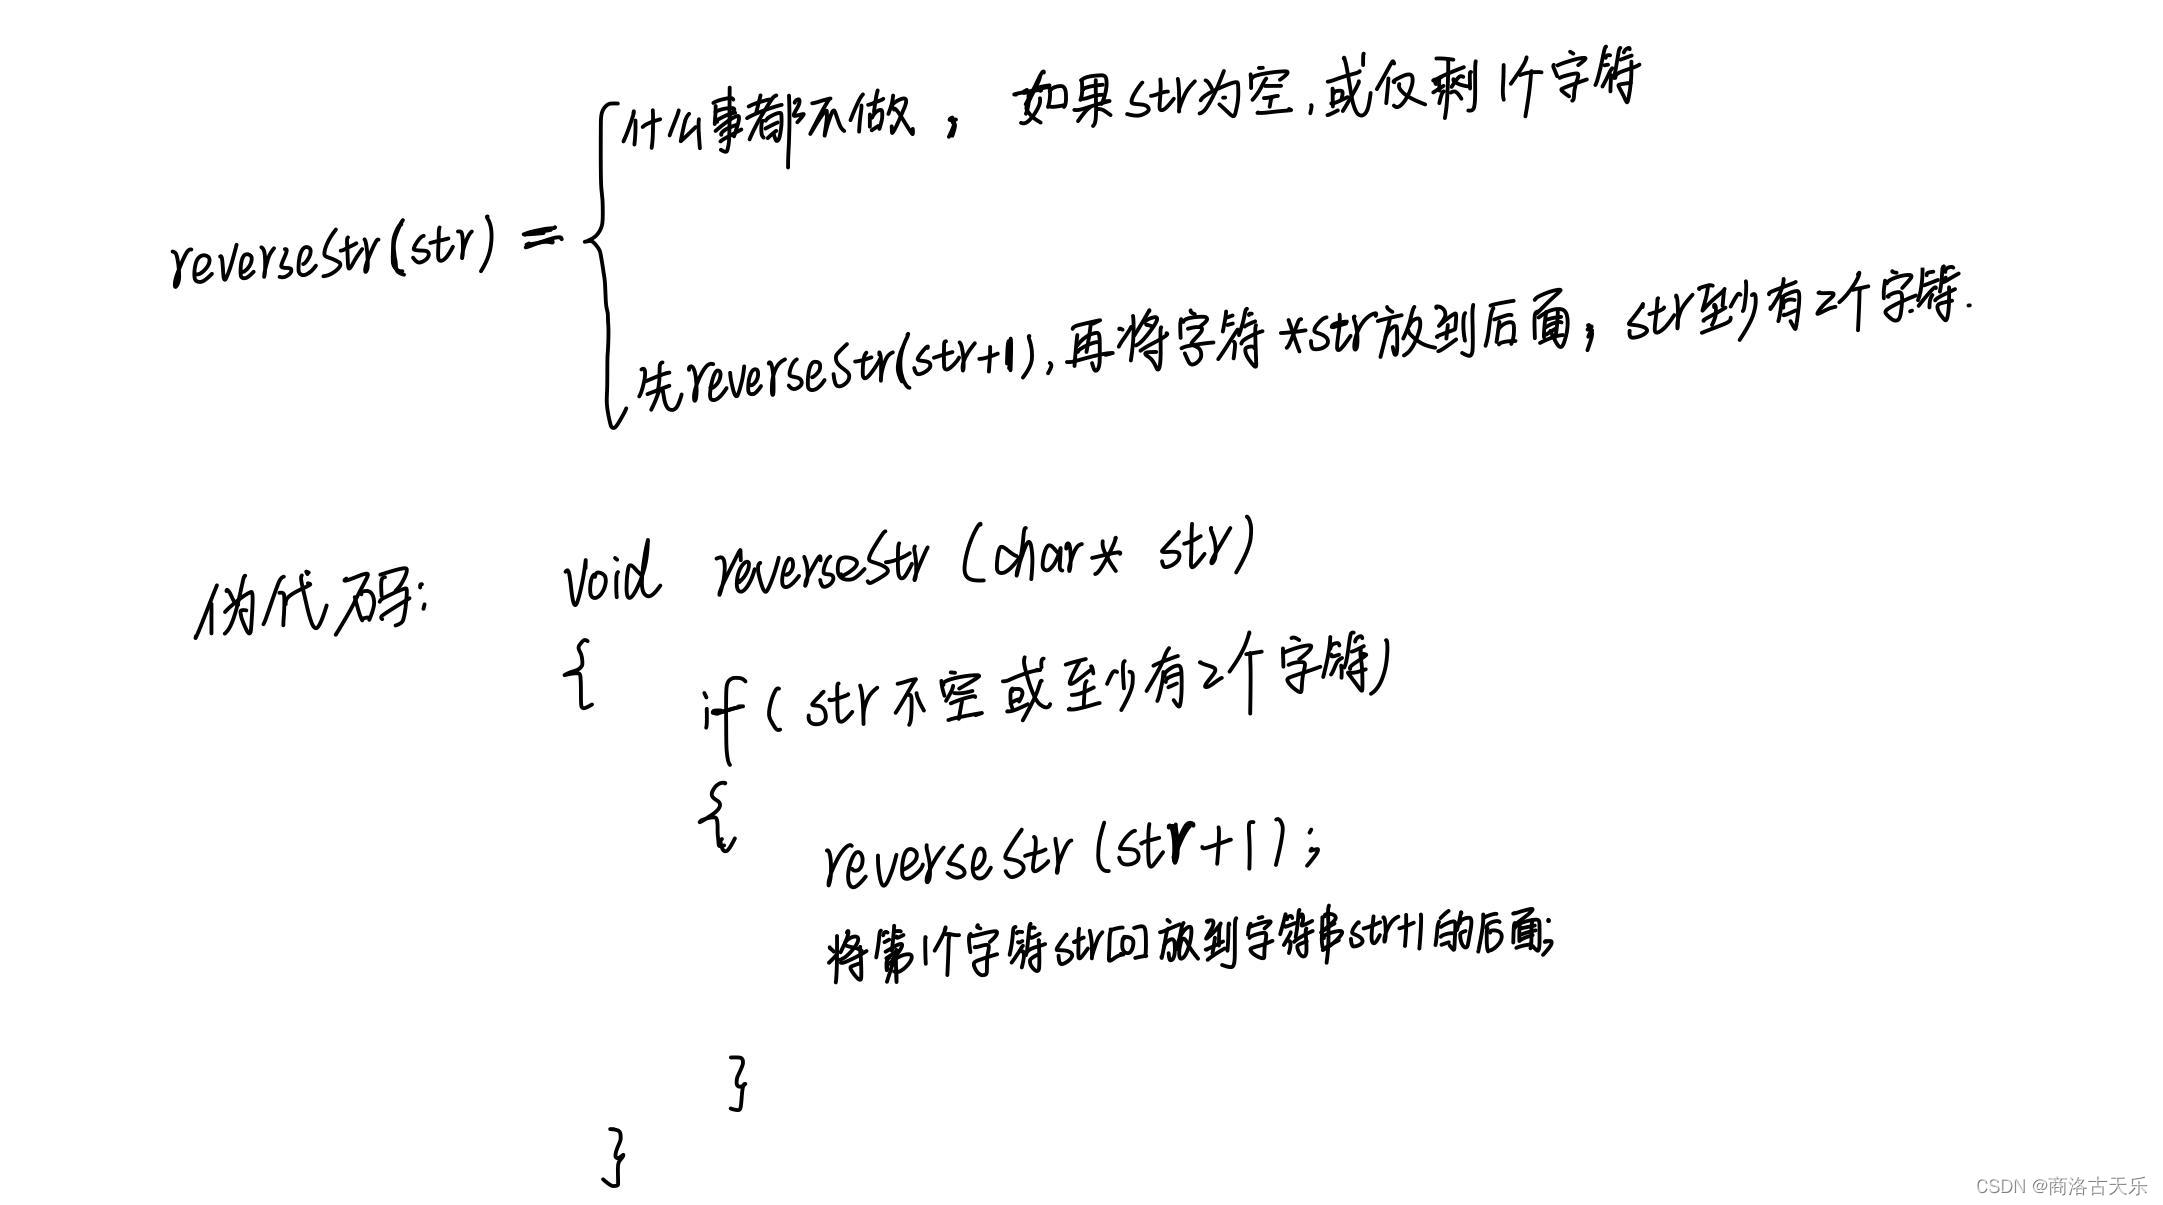 什么事都不做, 如果str为空,或仅剩1个字符
reverseStr(str) =
先reverseStr(str+1),再将字符*str放到后面, str至少有2个字符.
伪代码: void reverseStr (char* str)
{
if ( str不空或至少有2个字符)
{
reverseStr (str+1);
将第1个字符str[0]放到字符串str+1的后面;
}
}
CSDN @商洛古天乐